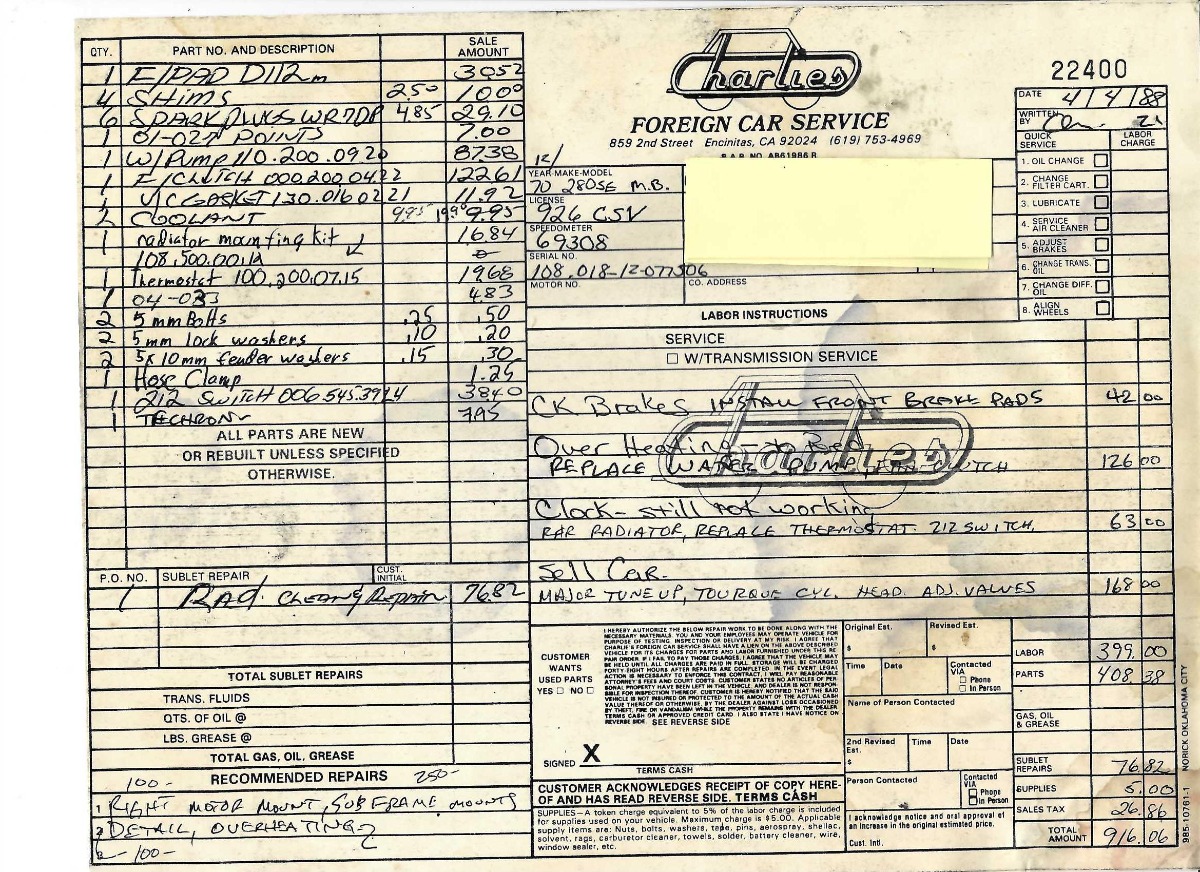 QTY. PART NO. AND DESCRIPTION SALE AMOUNT
1 F/PAD D112m 3052
4 SHIMS 2.50 10.00
6 SPARK PLUGS WR7DP 4.85 29.10
1 01-027 POINTS 7.00
1 W/Pump 110.200.0920 87.38
1 F/CLUTCH 000.200.04.22 122.61
1 V/C GASKET 130.016.02 21 11.92
2 COOLANT 9.95
1 radiator mounting kit 16.84
108.500.00.12
1 Thermostat 100.200.07.15 19.68
1 04-033 4.83
2 5mm Bolts .25 .50
2 5mm lock washers .10 .20
2 5x10mm fender washers .15 .30
1 Hose Clamp 1.25
1 212 SWITCH 006.545.3914 3840
1 TECHRON 7.95
ALL PARTS ARE NEW
OR REBUILT UNLESS SPECIFIED
OTHERWISE.
P.O. NO. SUBLET REPAIR CUST. INITIAL
1 Rad. Clean & Repair 76.82
TOTAL SUBLET REPAIRS
TRANS. FLUIDS
QTS. OF OIL @
LBS. GREASE @
TOTAL GAS, OIL, GREASE
100- RECOMMENDED REPAIRS 250-
1 RIGHT MOTOR MOUNT, SUBFRAME MOUNTS
2 DETAIL, OVERHEATING?
100-
Charlies
FOREIGN CAR SERVICE
859 2nd Street Encinitas, CA 92024 (619) 753-4969
B.A.R. NO. AB61986 R
22400
DATE 4/4/88
WRITTEN BY
QUICK SERVICE LABOR CHARGE
1. OIL CHANGE
2. CHANGE FILTER CART.
3. LUBRICATE
4. SERVICE AIR CLEANER
5. ADJUST BRAKES
6. CHANGE TRANS. OIL
7. CHANGE DIFF. OIL
8. ALIGN WHEELS
12/
YEAR-MAKE-MODEL
70 280SE M.B.
LICENSE
926 CSV
SPEEDOMETER
69308
SERIAL NO.
108.018-12-077506
MOTOR NO. CO. ADDRESS
LABOR INSTRUCTIONS
SERVICE
W/TRANSMISSION SERVICE
CK Brakes INSTALL FRONT BRAKE PADS 42 00
Charlies
Over Heating
REPLACE WATER PUMP, FAN CLUTCH 126 00
Clock - still not working
R&R RADIATOR, REPLACE THERMOSTAT. 212 SWITCH. 63 00
Sell Car.
MAJOR TUNE UP, TOURQUE CYL. HEAD. ADJ. VALVES 168 00
CUSTOMER WANTS USED PARTS
YES NO
I HEREBY AUTHORIZE THE BELOW REPAIR WORK TO BE DONE ALONG WITH THE
NECESSARY MATERIALS. YOU AND YOUR EMPLOYEES MAY OPERATE VEHICLE FOR
PURPOSE OF TESTING, INSPECTION OR DELIVERY AT MY RISK. I AGREE THAT
CHARLIE'S FOREIGN CAR SERVICE SHALL HAVE A LIEN ON THE ABOVE DESCRIBED
VEHICLE FOR ITS CHARGES FOR PARTS AND LABOR FURNISHED UNDER THIS RE-
PAIR ORDER. IF I FAIL TO PAY THOSE CHARGES, I AGREE THAT THE VEHICLE MAY
BE HELD UNTIL ALL CHARGES ARE PAID IN FULL. STORAGE WILL BE CHARGED
FORTY-EIGHT HOURS AFTER REPAIRS ARE COMPLETED. IN THE EVENT LEGAL
ACTION IS NECESSARY TO ENFORCE THIS CONTRACT, I WILL PAY REASONABLE
ATTORNEY'S FEES AND COURT COSTS. CUSTOMER STATES NO ARTICLES OF PER-
SONAL PROPERTY HAVE BEEN LEFT IN THE VEHICLE, AND DEALER IS NOT RESPON-
SIBLE FOR INSPECTION THEREOF. CUSTOMER IS HEREBY NOTIFIED THAT THE SAID
VEHICLE IS NOT INSURED OR PROTECTED TO THE AMOUNT OF THE ACTUAL CASH
VALUE THEREOF OR OTHERWISE, BY THE DEALER AGAINST LOSS OCCASIONED
BY THEFT, FIRE OR VANDALISM WHILE THE PROPERTY REMAINS WITH THE DEALER
TERMS CASH OR APPROVED CREDIT CARD. I ALSO STATE I HAVE NOTICE ON
REVERSE SIDE. SEE REVERSE SIDE
SIGNED X
TERMS CASH
CUSTOMER ACKNOWLEDGES RECEIPT OF COPY HERE-
OF AND HAS READ REVERSE SIDE. TERMS CASH
SUPPLIES – A token charge equivalent to 5% of the labor charge is included
for supplies used on your vehicle. Maximum charge is $5.00. Applicable
supply items are: Nuts, bolts, washers, tape, pins, aerospray, shellac,
solvent, rags, carburetor cleaner, towels, solder, battery cleaner, wire,
window sealer, etc.
Original Est. Revised Est.
$ $
Time Date Contacted VIA Phone In Person
Name of Person Contacted
2nd Revised Est. Time Date
$
Person Contacted Contacted VIA Phone In Person
I acknowledge notice and oral approval of
an increase in the original estimated price.
Cust. Intl.
LABOR 399.00
PARTS 408.38
GAS, OIL & GREASE
SUBLET REPAIRS 76.82
SUPPLIES 5.00
SALES TAX 26.86
TOTAL AMOUNT 916.06
985-10761-1 NORICK OKLAHOMA CITY